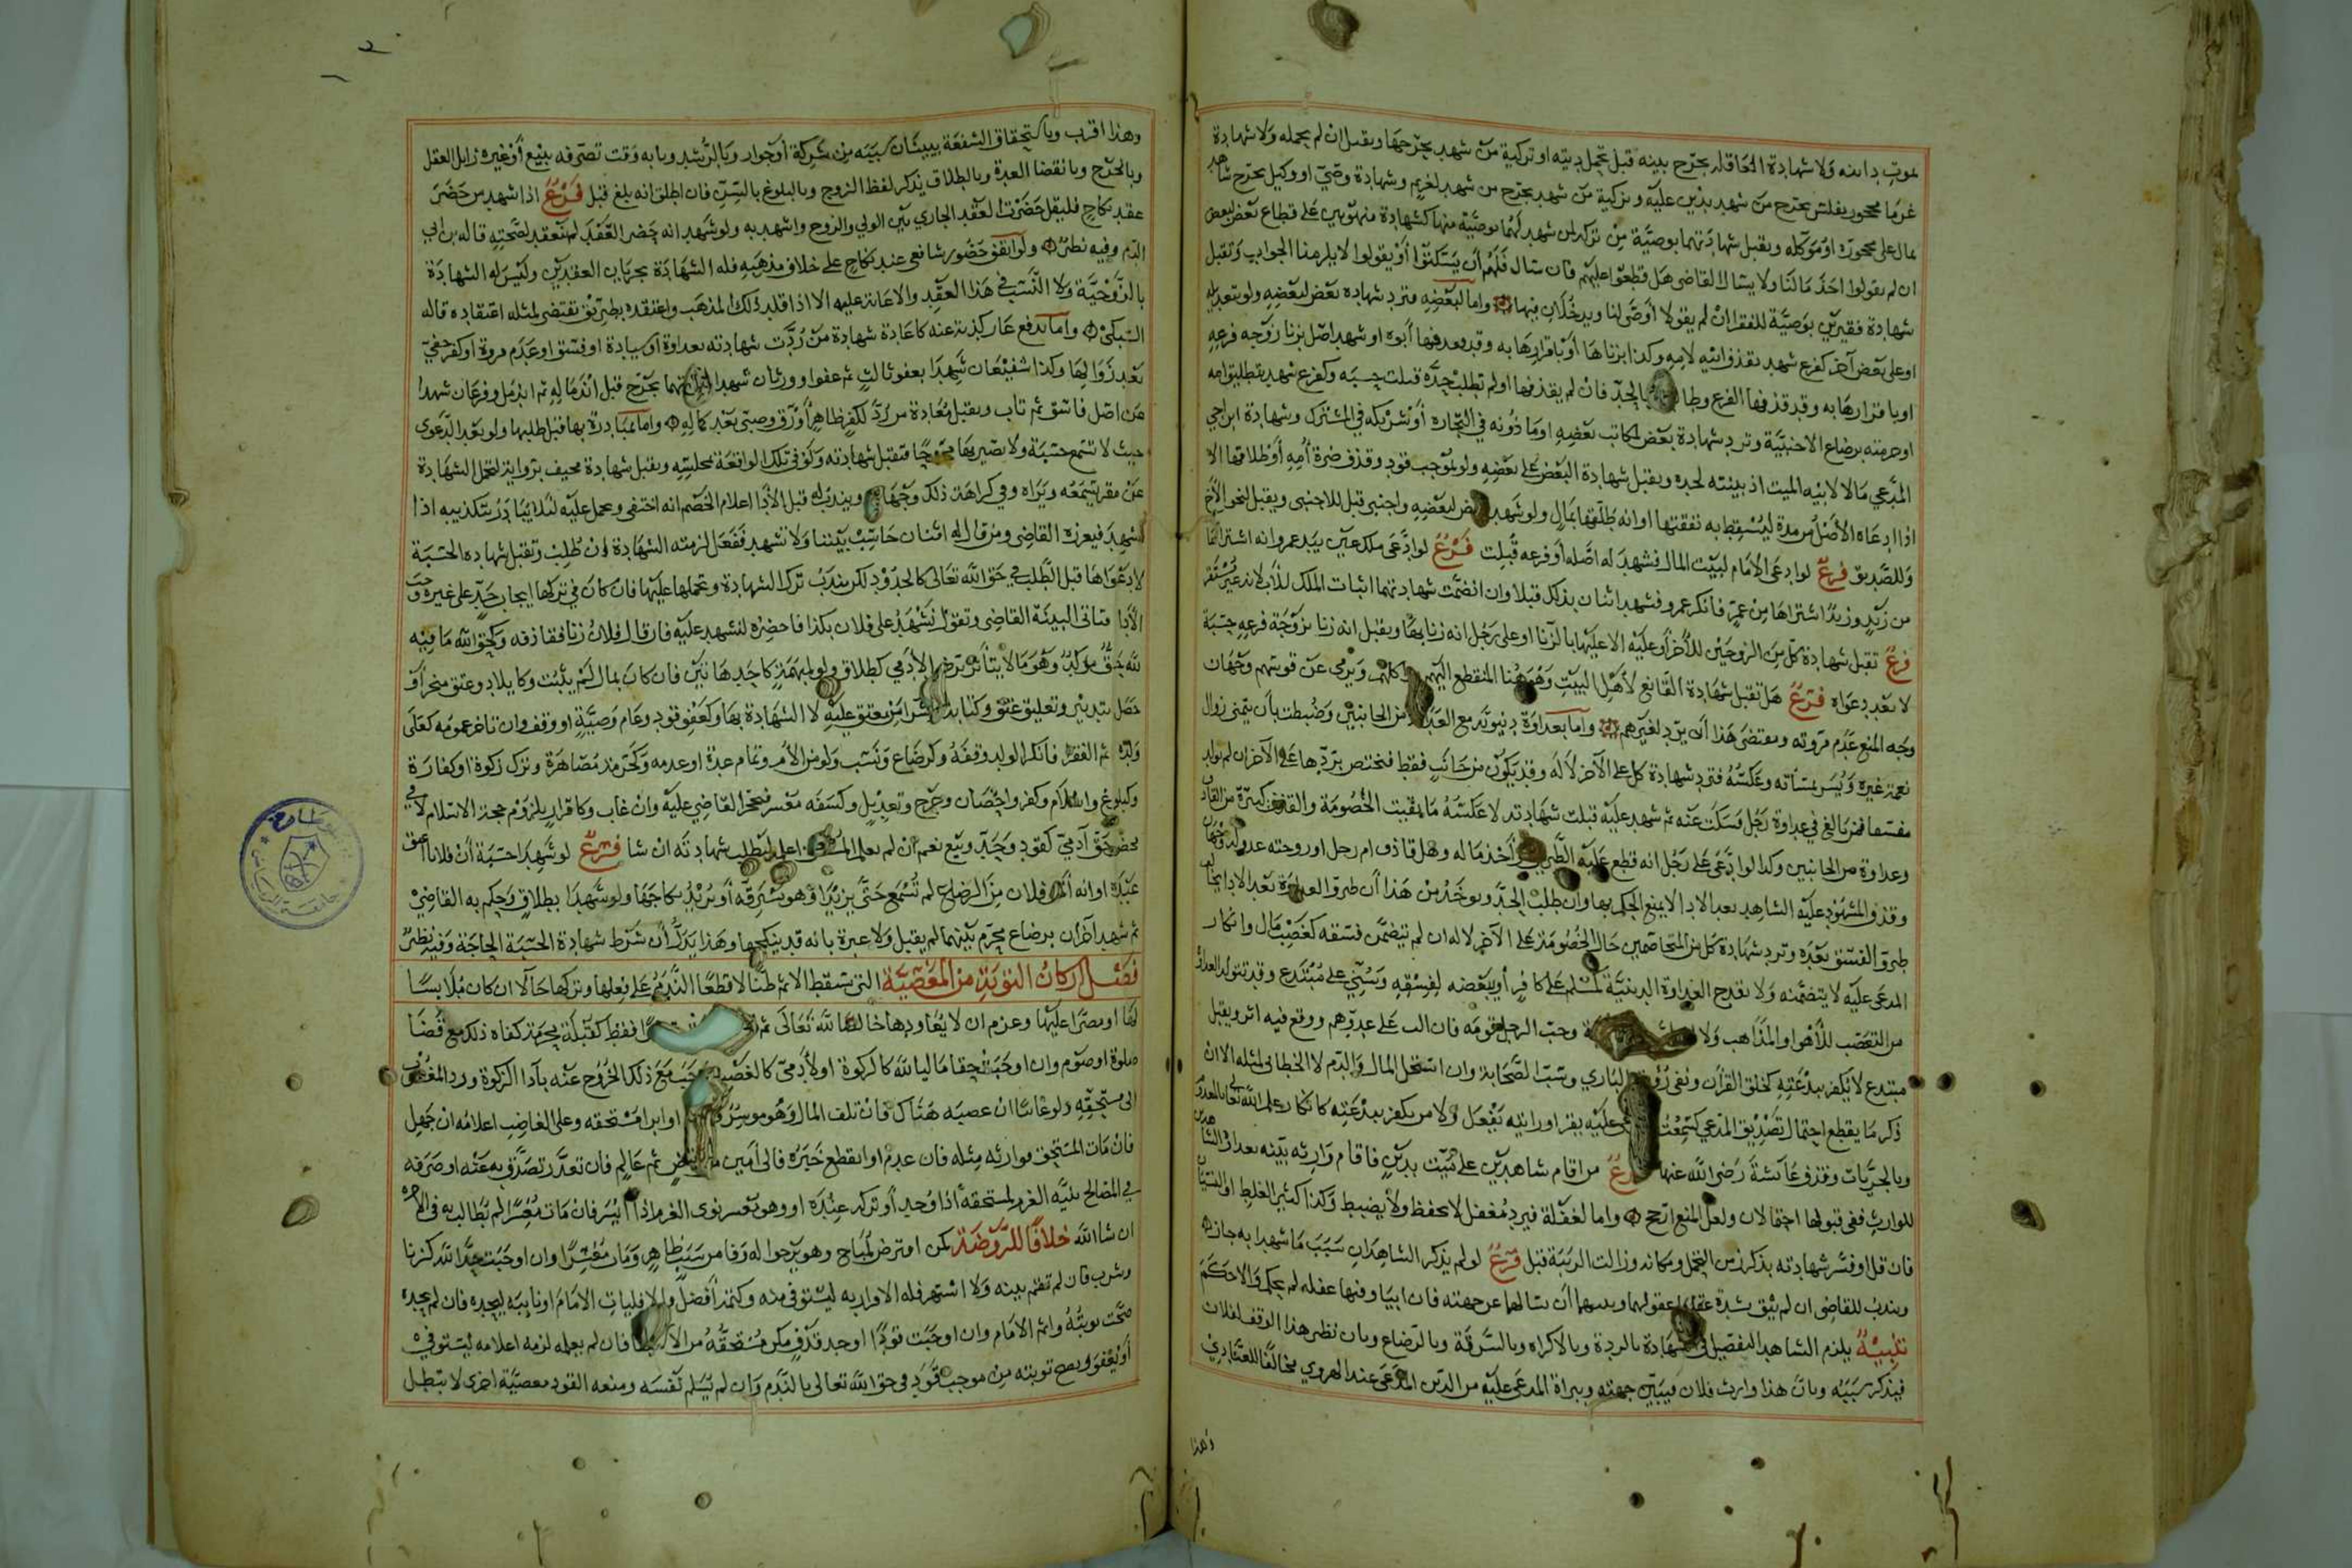 لموت دائنه ولا شهادة العاقلة بجرح بينه قبل تحمل ديته او تزكية من شهد بجرحها ويقبل ان لم يحمله ولا شهادة
غرما محجور بفلس بجرح من شهد بدين عليه وتزكية من شهد بجرح من شهد لغريم وشهادة وصي او وكيل بجرح شاهد
بمال على محجوره او موكله ويقبل شهادتهما بوصية من تركه لمن شهد لهما بوصية منها كشهادة منهوبين على قطاع بعض لبعض
ان لم يقولوا اخذ مالنا ولا يسال القاضي هل قطعوا عليهم فان سال فلهم ان يسكتوا او يقولوا لا يلزمنا الجواب وتقبل
شهادة فقيرين بوصية للفقرا ان لم يقولا اوصى لنا ويدخلان فيها واما لبعضه فترد شهادة بعض لبعضه ولو بتعديله
او على بعض آخر كفرع شهد بقذف ابنه لامه وكذا بزناها او باقرارها به وقد قذفها أبوه او شهد اصل بزنا زوجه فرعه
او باقرارها به وقد قذفها الفرع وطالب بالحد فان لم يقذفها او لم تطلب حده قبلت حسبه وكفرع شهد بتطليق امه
او حرمته برضاع الاجنبية وترد شهادة بعض لمكاتب بعضه او ماذونه في التجاره أو شريكه في المشترك وشهادة ابن اخي
المدعي مالا لابيه الميت اذ بينته لجده ويقبل شهادة البعض على بعضه ولو بموجب قود وقذف ضرة أمه أو طلاقها الا
اذا ادعاه الأصل من مدة ليسقط به نفقتها او انه طلقها بمال ولو شهد لبعضه واجنبي قبل للاجنبي ويقبل لنحو الأخ
وللصديق فرع لو ادعى الإمام لبيت المال فشهد له اصله أو فرعه قبلت فرع لو ادعى ملك عين بيد عمرو انه اشتراها
من زيد وزيد اشتراها من عمرو فانكر عمرو فشهد اثنان بذلك قبلا وان انضمت شهادتهما اثبات الملك لأب لانه غير مستقر
فرع تقبل شهادة كل من الزوجين للآخر أو عليه الا عليها بالزنا او على رجل انه زنا بها ويقبل انه زنا بزوجة فرعه حسبة
لا بعد دعواه فرع هل تقبل شهادة القانع لأهل البيت وهو هنا المنقطع اليهم وجهان
وجه المنع عدم مروته ومقتضى هذا أن يرد لغيرهم واما بعداوة دنيوية مع العداوة من الجانبين وضبطت بأن يتمنى زوال
نعمة غيره ويسر بمساءته وعكسه فترد شهادة كل على الآخر لا له وقد يكون من جانب فقط فتختص بردها على الآخر ان لم يولد
مفسقا فمن بالغ في عداوة رجل فسكت عنه ثم شهد عليه قبلت شهادته لا عكسه ما بقيت الخصومة والقذف كبيرة من القاذف
وعداوة من الجانبين وكذا لو ادعى على رجل انه قطع عليه الطريق وأخذ ماله وهل قاذف ام رجل او زوجته عدو له وجهان
وقذف المشهود عليه الشاهد بعد الاداء لا يمنع الحكم بها وان طلب الحد ويوخذ من هذا أن طرو العداوة بعد الاداء
طرو الفسق بعده وترد شهادة كل من المتخاصمين حال الخصومة على الآخر لا له ان لم تتضمن فسقه كغصب مال وانكار
المدعى عليه لا يتضمنه ولا يقدح العداوة الدينية لمسلم على كافر أو يبغضه لفسقه وسني على مبتدع وقد تتولد العداوة
من التعصب للأهوا والمذاهب ولا وحب الرجل قومه فان الب على عدوهم ووقع فيه اثر ويقبل
مبتدع لا يكفر ببدعته كخلق القرآن ونفي رؤية الباري وسب الصحابة وان استحل المال والدم لا الخطابي لمثله الا ان
ذكر ما يقطع احتمال تصديق المدعي كسمعت المدعي عليه يقر او رايته يفعل ولا من يكفر ببدعته كانكار علم الله تعالى بالمعدوم
وبالجزيات وقذف عائشة رضي الله عنها فرع من اقام شاهدين على ميت بدين فاقام وارثه بينه بعداوة الشاهدين
للوارث ففي قبولها احتمالان ولعل المنع ارجح واما لغفلة فيرد مغفل لا يحفظ ولا يضبط وكذا كثير الغلط او النسيان
فان قل او فسر شهادته بذكر زمن التحمل ومكانه وزالت الريبة قبل فرع لو لم يذكر الشاهدان سبب ما شهدا به جاز
ويندب للقاضي ان لم يثق بشدة عقولهما أن سالهما عن جهته فان ابيا وفيها غفله لم يحكم والا حكم
تنبيه يلزم الشاهد التفصيل في شهادة بالردة وبالاكراه وبالسرقة وبالرضاع وبان نظر هذا الوقف لفلان
فيذكر سببه وبان هذا وارث فلان فيبين جهته وببراة المدعى عليه من الدين المدعى عند الهروي مخالفا للعبادي
وهذا
وهذا اقرب وباستحقاق الشفعة يبينان سببه من شركة أو جوار وبالرشد وبانه وقت تصرفه ببيع أو غيره زايل العقل
وبالجرح وبانقضا العدة وبالطلاق يذكر لفظ الزوج وبالبلوغ بالسن فان اطلق انه بلغ قبل فرع اذا شهد من حضر
عقد نكاح فليقل حضرت العقد الجاري بين الولي والزوج واشهد به ولو شهد انه حضر العقد لم تنعقد لصحته قاله بن أبي
الدم وفيه نظر ولو اتفق حضور شافعي عند نكاح على خلاف مذهبه فله الشهادة بجريان العقدين وليس له الشهادة
بالزوجية ولا التسبب في هذا العقد والاعانة عليه الا اذا قلد ذلك المذهب واعتقده بطريق تقتضي لمثله اعتقاده قاله
السبكي واما بدفع عار كذبه عنه كاعادة شهادة من ردت شهادته بعداوة أو سيادة او فسق او عدم مروة أو كفر خفي
بعد زوالها وكذا شفيعان شهدا بعفو ثالث ثم عفوا ووارثان شهدا بجرح قبل اندماله ثم اندمل وفرعان شهدا
من اصل فاسق ثم تاب ويقبل معادة من رد لكفر ظاهر أو رق وصبى بعد كماله واما بمبادرة بها قبل طلبها ولو بعد الدعوى
حيث لا تسمع حسبة ولا نصير بها مجروحا فتقبل شهادته ولو في تلك الواقعة بمجلسه ويقبل شهادة مختف بزاوية لتحمل الشهادة
عن مقر يسمعه ويراه وفي كراهة ذلك وجهان ويندب له قبل الأداء اعلام الخصم انه اختفى وعمل عليه لئلا يبادر بتكذيبه اذا
شهد فيعزره القاضي ومن قال له اثنان حاسب بيننا ولا تشهد ففعل لزمته الشهادة ان طلب وتقبل شهاده الحسبة
لا دعواها قبل الطلب في حق الله تعالى كالحدود لكن يندب ترك الشهادة وتحملها عليها فان كان في تركها ايجاب حد على غيره وجب
الأداء فتاتي البينة القاضي وتقول نشهد على فلان بكذا فاحضره لنشهد عليه فان قال فلان زنا فقاذفه وكحق الله ما فيه
لله حق مؤكد وهو ما لا يتأثر برضى الآدمي كطلاق ولو لمبهمة كاحدهاتين فان كان بمال لم يثبت وكايلاد وعتق منجز أو
حصل بتدبير وتعليق عتق وكتابة بمن يعتق عليه لا الشهادة بها وكعفو قود وعام وصية او وقف وان تاخر عمومه كعلى
ولده ثم الفقرا فانكر الولد وقفه وكرضاع ونسب ولو من الأم وتمام عدة او عدمه وكحرمة مصاهرة وترك زكوة او كفارة
وكبلوغ واسلام وكفر واحصان وجرح وتعديل وكسفه معسر فيحجر القاضي عليه وان غاب وكاقرار يلزوم حجة الاسلام لا في
محض حق آدمي كقود وحد وبيع نعم ان لم يعلم المستحق اعلم ليطلب شهادته ان شا فرع لو شهدا حسبة أن فلانا اعتق
عبده او انه أخ فلان من الرضاع لم تسمع حتى يزيدا وهو يسترقه أو يريد نكاحها ولو شهدا بطلاق وحكم به القاضي
ثم شهد آخران برضاع محرم بينهما لم يقبل ولا عبرة بانه قد ينكحها وهذا يدل أن شرط شهادة الحسبة الحاجة وفيه نظر
فصل اركان التوبة من المعصية التي تسقط الاثم ظنا لا قطعا الندم على فعلها وتركها حالا ان كان ملابسا
لها او مصرا عليها وعزم ان لا يعاودها خالصا لله تعالى ثم فقط كقبلة محرمة كفاه ذلك مع قضا
صلوة او صوم وان اوجبت حقا ماليا لله كالزكوة او لآدمي كالغصب وجب مع ذلك الخروج عنه بآدا الزكوة ورد المغصوب
الى مستحقه ولو غائبا ان غصبه هناك فان تلف المال وهو موسر او ابرا مستحقه وعلى الغاصب اعلامه ان جهل
فان مات المستحق فوارثه مثله فان عدم او انقطع خبره فالى أمين ثم عالم فان تعذر تصدق به عنه او صرفه
في المصالح بنية الغرم لمستحقه اذا وجد أو تركه عنده او وهو معسر نوى الغرم اذا ايسر فان مات معسرا لم يطالب به في الآخرة
ان شا الله خلافا للروضة كمن اقترض لمباح وهو يرجوا له وفا من سبب ظاهر ومات معسرا وان اوجبت حدا لله كزنا
وشرب فان لم تقم بينه ولا اشتهر فله الاقرار به ليستوفى منه وكتمه أفضل والا فليات الامام او نايبه ليحده فان لم يحده
صحت توبته واثم الامام وان اوجبت قودا او حد قذف مكن مستحقه من الاستيفا فان لم يعلمه لزمه اعلامه ليستوفيه
أو يعفو ويصح توبته من موجب قود في حق الله تعالى بالندم وان لم يسلم نفسه ومنعه القود معصية اخرى لا تبطل